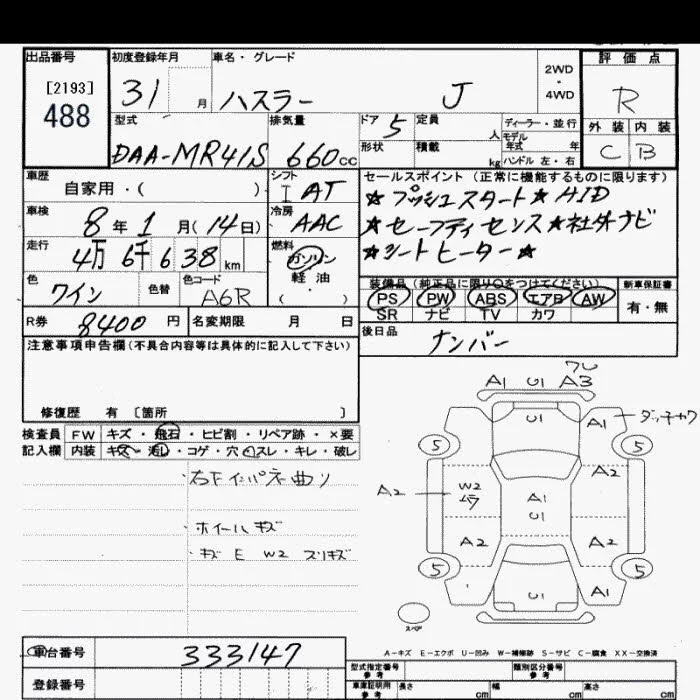 出品番号 初度登録年月 車名・グレード 2WD・4WD 評価点
[2193] 488 31 月 ハスラー J R
型式 排気量 ドア 5 定員 人 ディーラー・並行 外装 内装
DAA-MR41S 660cc 形状 積載 kg モデル年式 年 C B
ハンドル 左・右
車歴 自家用・( ) シフト I AT セールスポイント(正常に機能するものに限ります)
★プッシュスタート★HID
車検 8年1月(14日) 冷房 AAC ★セーフティセンス★社外ナビ
走行 4万6千638km 燃料 ガソリン 軽油 ( ・ ) ★シートヒーター★
色 ワイン 色替 色コード A6R 装備品(純正品に限り○をつけてください) 新車保証書
PS PW ABS エアB AW 有・無
SR ナビ TV カワ
R券 8400円 名変期限 月 日 後日品 ナンバー
注意事項申告欄(不具合内容等は具体的に記入して下さい)
修復歴 有 [箇所 ]
検査員 FW キズ・飛石・ヒビ割・リペア跡・×要
記入欄 内装 キズ・汚レ・コゲ・穴・スレ・キレ・破レ
・右Fインパネ曲リ
・ホイールキズ
・キズ E W2 スリキズ
A1 U1 A3 ワレ
U1 A1 ダッチャク
5 5
A2 W2 ムラ A1 A2
U1
A2 A2
5 5
U1 A1
スペア
車台番号 333147
A-キズ E-エクボ U-凹み W-補修跡 S-サビ C-腐食 XX-交換済
登録番号
型式指定番号 参考 類別区分番号 参考
車庫証明用 参考 長さ cm 幅 cm 高さ cm